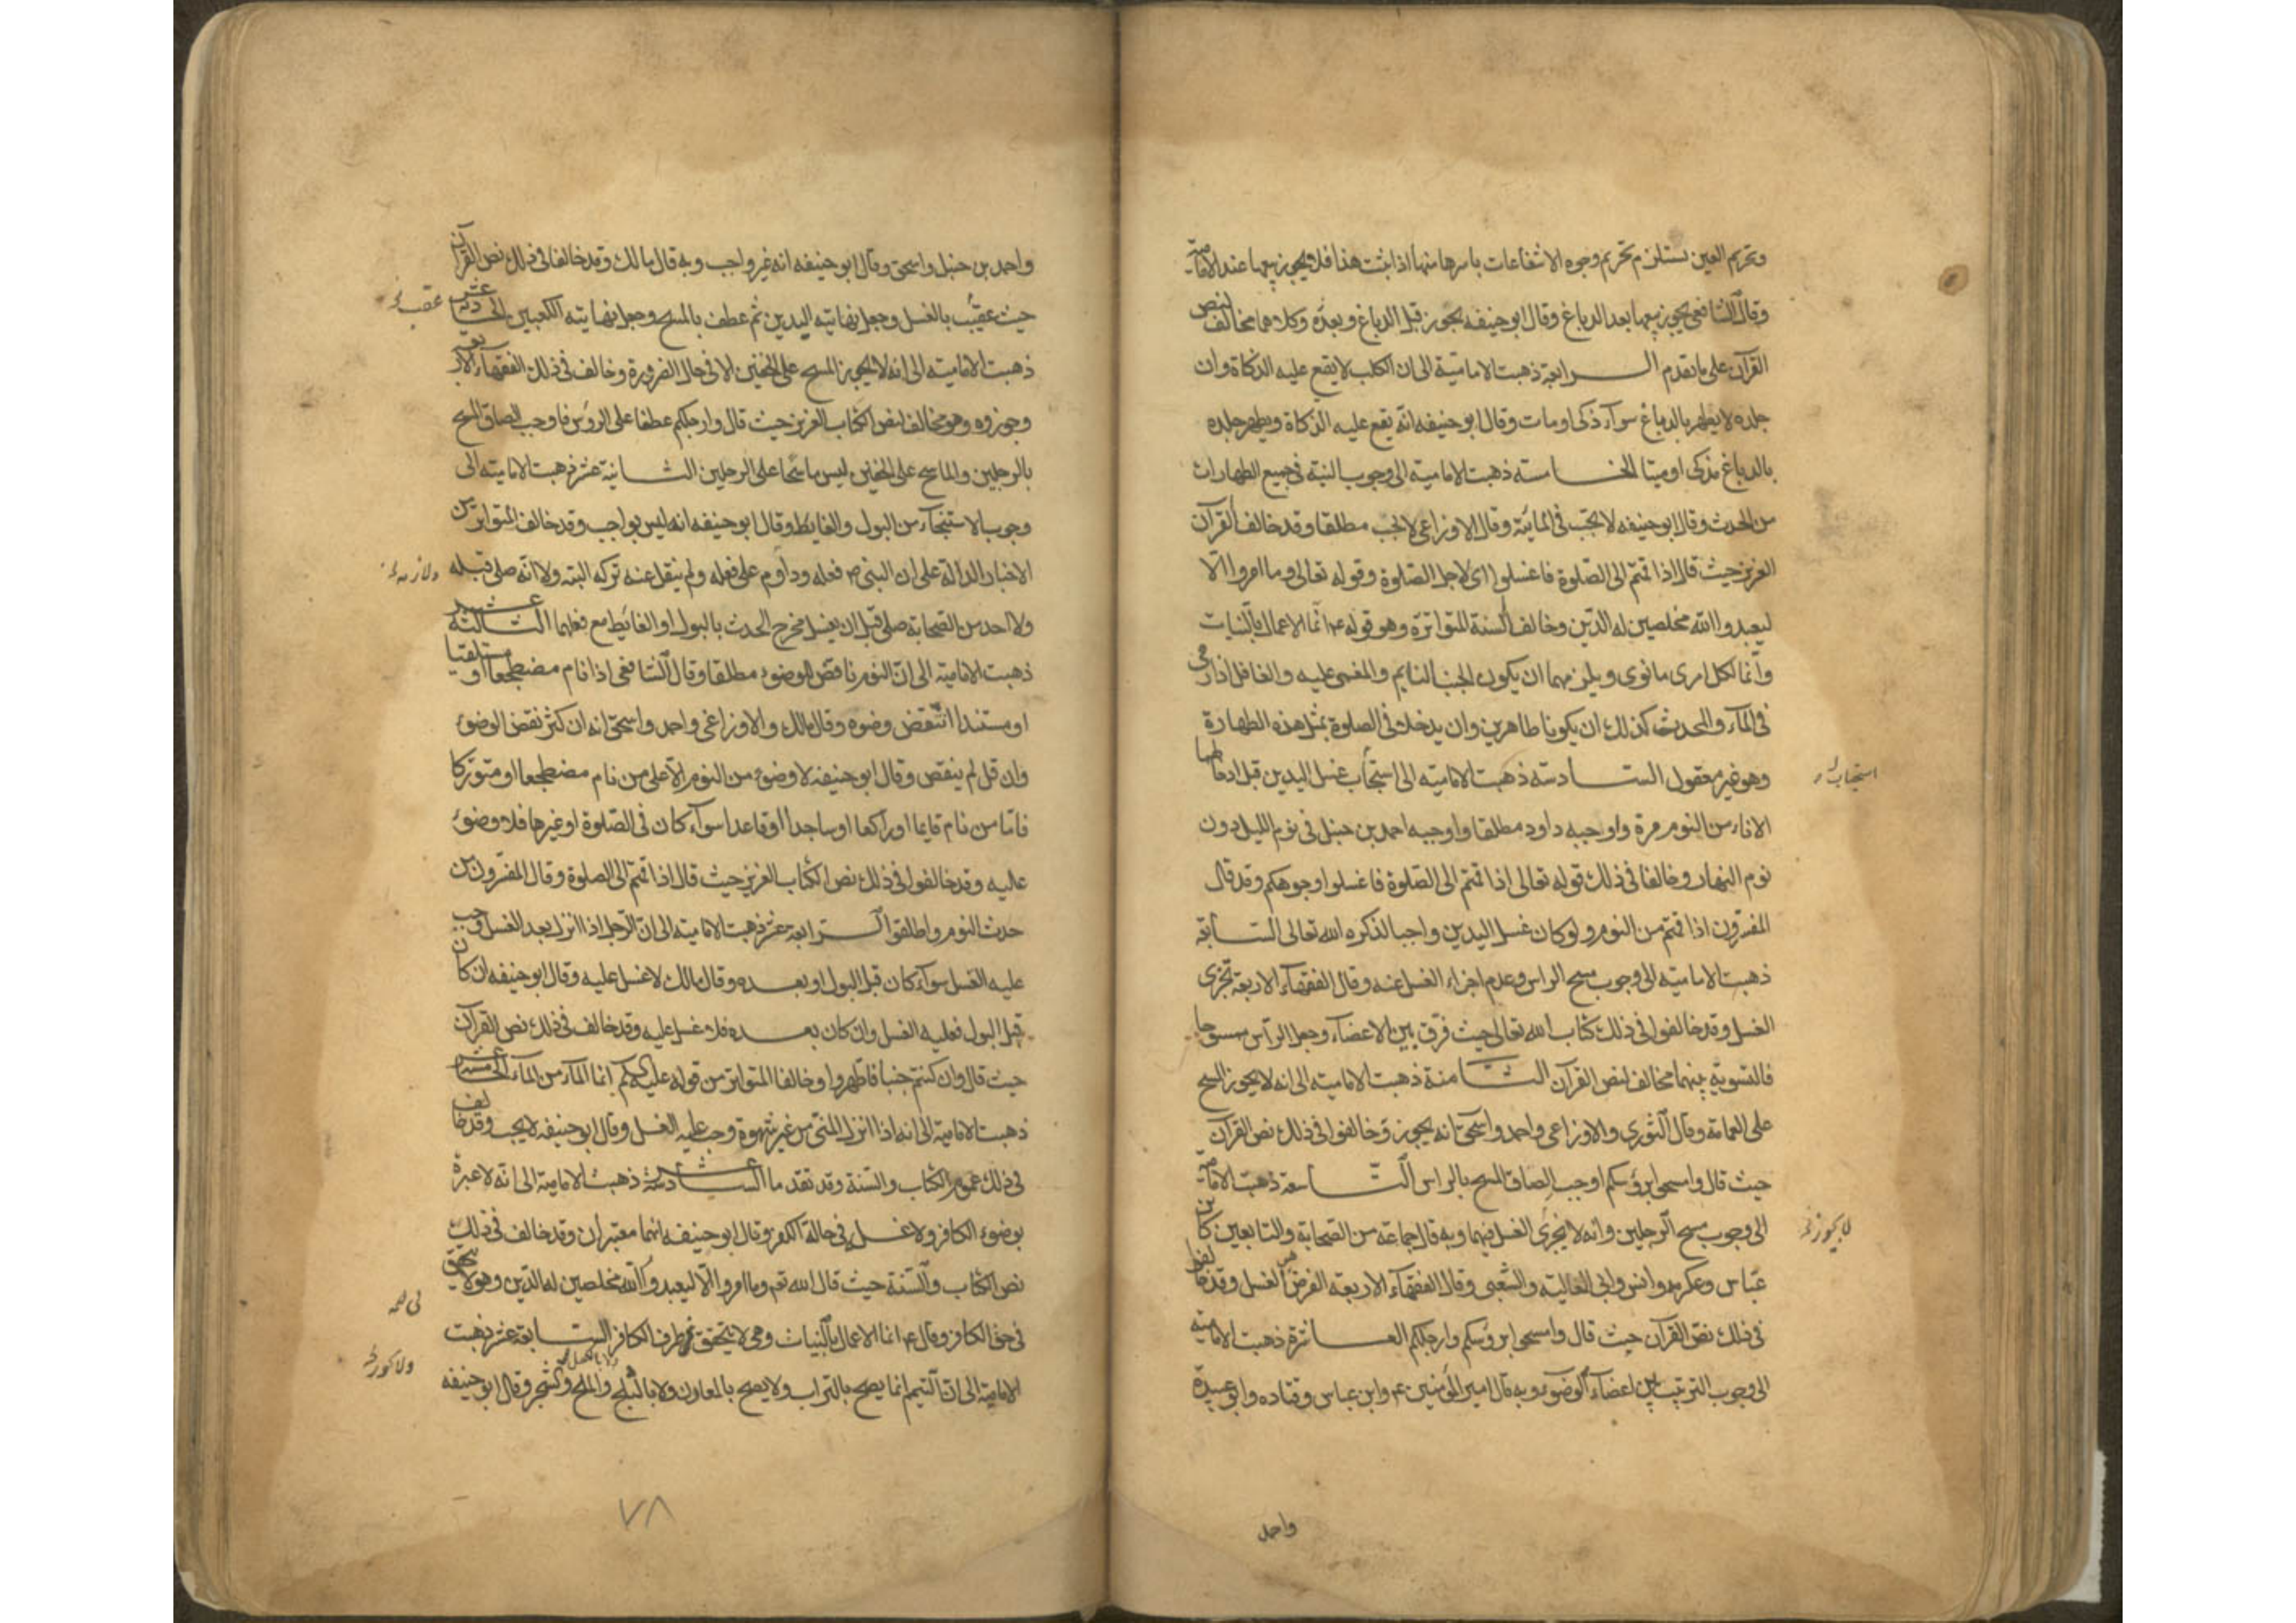 وتحريم العين يستلزم تحريم وجوه الانتفاعات باسرها منها اذا ثبت هذا فلا يجوز بيعها عند الامامية
وقال الشافعي يجوز بيعها بعد الدباغ وقال ابو حنيفه يجوز قبل الدباغ وبعده وكلاهما مخالف لنص
القرآن على ما تقدم الرابعة ذهبت الامامية الى ان الكلب لا يقع عليه الذكاة وان
جلده لا يطهر بالدباغ سوآء ذكى او مات وقال ابو حنيفه انه يقع عليه الذكاة ويطهر جلده
بالدباغ مذكى او ميتا الخامسة ذهبت الاماميه الى وجوب النية فى جميع الطهارات
من الحدث وقال ابو حنيفه لا يجب فى المائية وقال الاوزاعى لا تجب مطلقا وقد خالف القرآن
العزيز حيث قال اذا قمتم الى الصلوة فاغسلوا اى لاجل الصلوة وقوله تعالى وما امروا الا
ليعبدوا الله مخلصين له الدين وخالف السنة المتواترة وهو قوله ع انما الاعمال بالنيات
وانما لكل امرى ما نوى ويلزمهما ان يكون الجنب النايم والمغمى عليه والغافل اذا رمى
فى المآء والمحدث كذلك ان يكونا طاهرين وان يدخلا فى الصلوة بمثل هذه الطهارة
وهو غير معقول السادسة ذهبت الاماميه الى استحباب غسل اليدين قبل ادخالهما
الاناء من النوم مرة واوجبه داود مطلقا واوجبه احمد بن حنبل فى نوم الليل دون
نوم النهار وخالفا فى ذلك قوله تعالى اذا قمتم الى الصلوة فاغسلوا وجوهكم وقد قال
المفسرون اذا قمتم من النوم ولو كان غسل اليدين واجبا لذكره الله تعالى السابعة
ذهبت الاماميه الى وجوب مسح الراس وعدم اجزاء الغسل عنه وقال الفقهآء الاربعة تجزى
الغسل وقد خالفوا فى ذلك كتاب الله تعالى حيث فرق بين الاعضآء وجعل الرآس ممسوحا
فالتسوية بينهما مخالف لنص القرآن الثامنة ذهبت الامامية الى انه لا يجوز المسح
على العمامة وقال الثورى والاوزاعى واحمد واسحق انه يجوز وخالفوا فى ذلك نص القرآن
حيث قال وامسحوا برؤسكم اوجب الصاق المسح بالراس التاسعة ذهبت الامامية
الى وجوب مسح الرجلين وانه لا يجزى الغسل فيهما وبه قال جماعة من الصحابة والتابعين كابن
عباس وعكرمه وانس وابى العالية والشعبى وقال الفقهآء الاربعة الفرض هو الغسل وقد خالفوا
فى ذلك نص القرآن حيث قال وامسحوا برؤسكم وارجلكم العاشرة ذهبت الامامية
الى وجوب الترتيب بين اعضآء الوضوء وبه قال امير المؤمنين ع وابن عباس وقتاده وابو عبيدة
استحباب
لا يجوز
واحمد
واحمد بن حنبل واسحق وقال ابو حنيفه انه غير واجب وبه قال مالك وقد خالفا فى ذلك نص القرآن
حيث عقب بالغسل وجعل نهايته اليدين ثم عطف بالمسح وجعل نهايته الكعبين الحادية عشر
ذهبت الاماميه الى انه لا يجوز المسح على الخفين الا فى حال الضرورة وخالف فى ذلك الفقهآء الاربعة
وجوزوه وهو مخالف لنص الكتاب العزيز حيث قال وارجلكم عطفا على الرؤس فاوجب الصاق المسح
بالرجلين والماسح على الخفين ليس ماسحا على الرجلين الثانية عشر ذهبت الاماميه الى
وجوب الاستنجآء من البول والغايط وقال ابو حنيفه انه ليس بواجب وقد خالف المتواتر من
الاخبار الدالة على ان النبى ص فعله وداوم على فعله ولم ينقل عنه تركه البته ولا انه صلى قبله
ولا احد من الصحابة صلى قبل ان يغسل مخرج الحدث بالبول او الغائط مع فعلهما الثالثة عشر
ذهبت الاماميه الى ان النوم ناقض للوضوء مطلقا وقال الشافعى اذا نام مضطجعا او مستلقيا
او مستندا انتقض وضوه وقال مالك والاوزاعى واحمد واسحق انه ان كثر نقض الوضوء
وان قل لم ينقض وقال ابو حنيفه لا وضوء من النوم الا على من نام مضطجعا او متوركا
فاما من نام قايما او راكعا او ساجدا او قاعدا سوآء كان فى الصلوة او غيرها فلا وضوء
عليه وقد خالفوا فى ذلك نص الكتاب العزيز حيث قال اذا قمتم الى الصلوة وقال المفسرون من
حدث النوم واطلقوا الرابعة عشر ذهبت الاماميه الى ان الرجل اذا انزل بعد الغسل وجب
عليه الغسل سوآء كان قبل البول او بعده وقال مالك لا غسل عليه وقال ابو حنيفه ان كان
قبل البول فعليه الغسل وان كان بعده فلا غسل عليه وقد خالف فى ذلك نص القرآن
حيث قال وان كنتم جنبا فاطهروا وخالفا المتواتر من قوله عليكم انما المآء من المآء الخامسة عشر
ذهبت الاماميه الى انه اذا انزل المنى من غير شهوة وجب عليه الغسل وقال ابو حنيفه لا يجب وقد خالف
فى ذلك عموم الكتاب والسنة وقد تقدما السادسة عشر ذهبت الاماميه الى انه لا عبرة
بوضوء الكافر ولا غسله فى حالة الكفر وقال ابو حنيفه انهما معتبران وقد خالف فى ذلك
نص الكتاب والسنة حيث قال الله تعم وما امروا الا ليعبدوا الله مخلصين له الدين وهو لا يتحقق
فى حق الكافر وقال ع انما الاعمال بالنيات وهى لا يتحقق من طرف الكافر السابعة عشر ذهبت
الامامية الى ان التيمم انما يصح بالتراب ولا يصح بالمعادن ولا بالثلج والملح والشجر وقال ابو حنيفه
عقب
٧٨